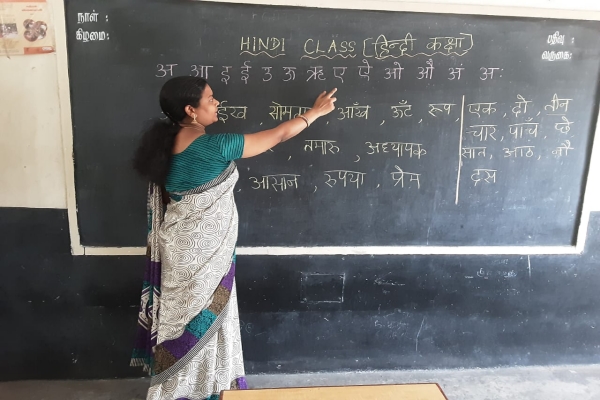 நாள் :
கிழமை:
பதிவு :
வருகை:
HINDI CLASS [हिन्दी कक्षा]
अ आ इ ई उ ऊ ऋ ए ऐ ओ औ अं अः
ईख , आँख , ऊँट , रूप ,
, तमारु , अध्यापक
, आसान , रुपया , प्रेम
एक , दो , तीन
चार , पाँच , छे
सात , आठ , नौ
दस